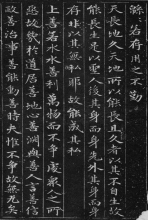 緜若存用之不勤
天長地久天地所以能長且久者以其不自生故
能長生是以聖人後其身而身先外其身而身
存非以其無私耶故能成其私
上善若水水善利萬物而不爭處衆人之所
惡故幾於道居善地心善淵與善言善信
政善治事善能動善時夫惟不爭故無尤矣